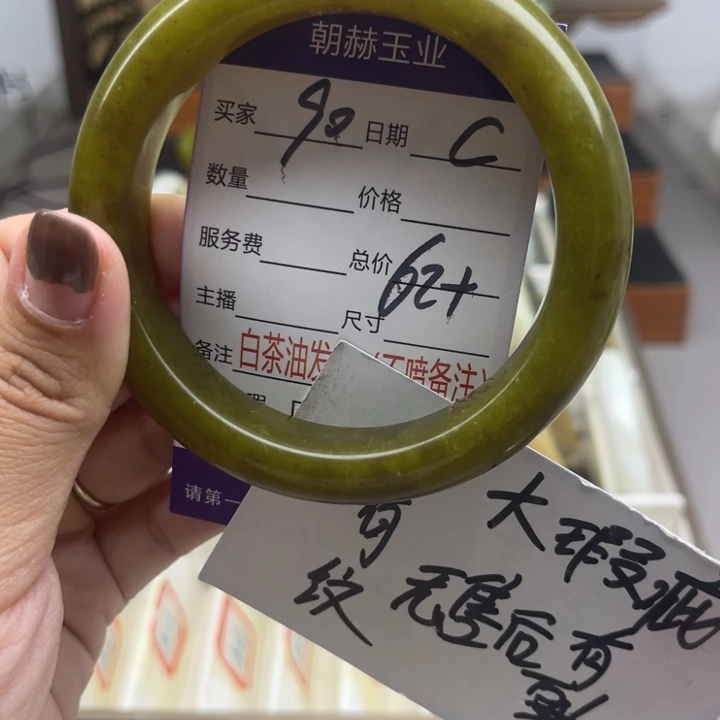 朝赫玉业
买家 90 日期 C
数量 价格
服务费 总价 62+
主播 尺寸
备注 白茶油发 不喷备注
请第一
有 大瑕疵
纹 无售后 有